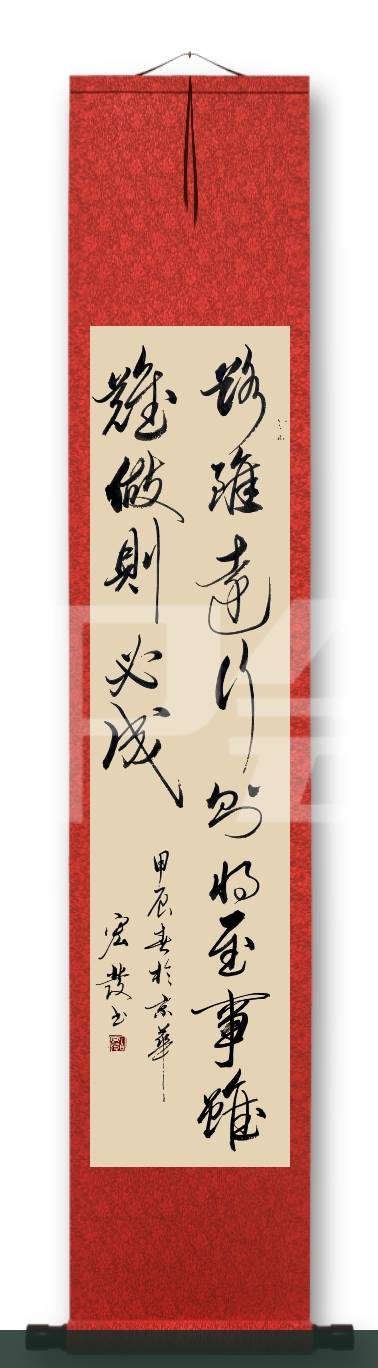 路雖遠行則將至事雖
難做則必成
甲辰春於京華
宏發书